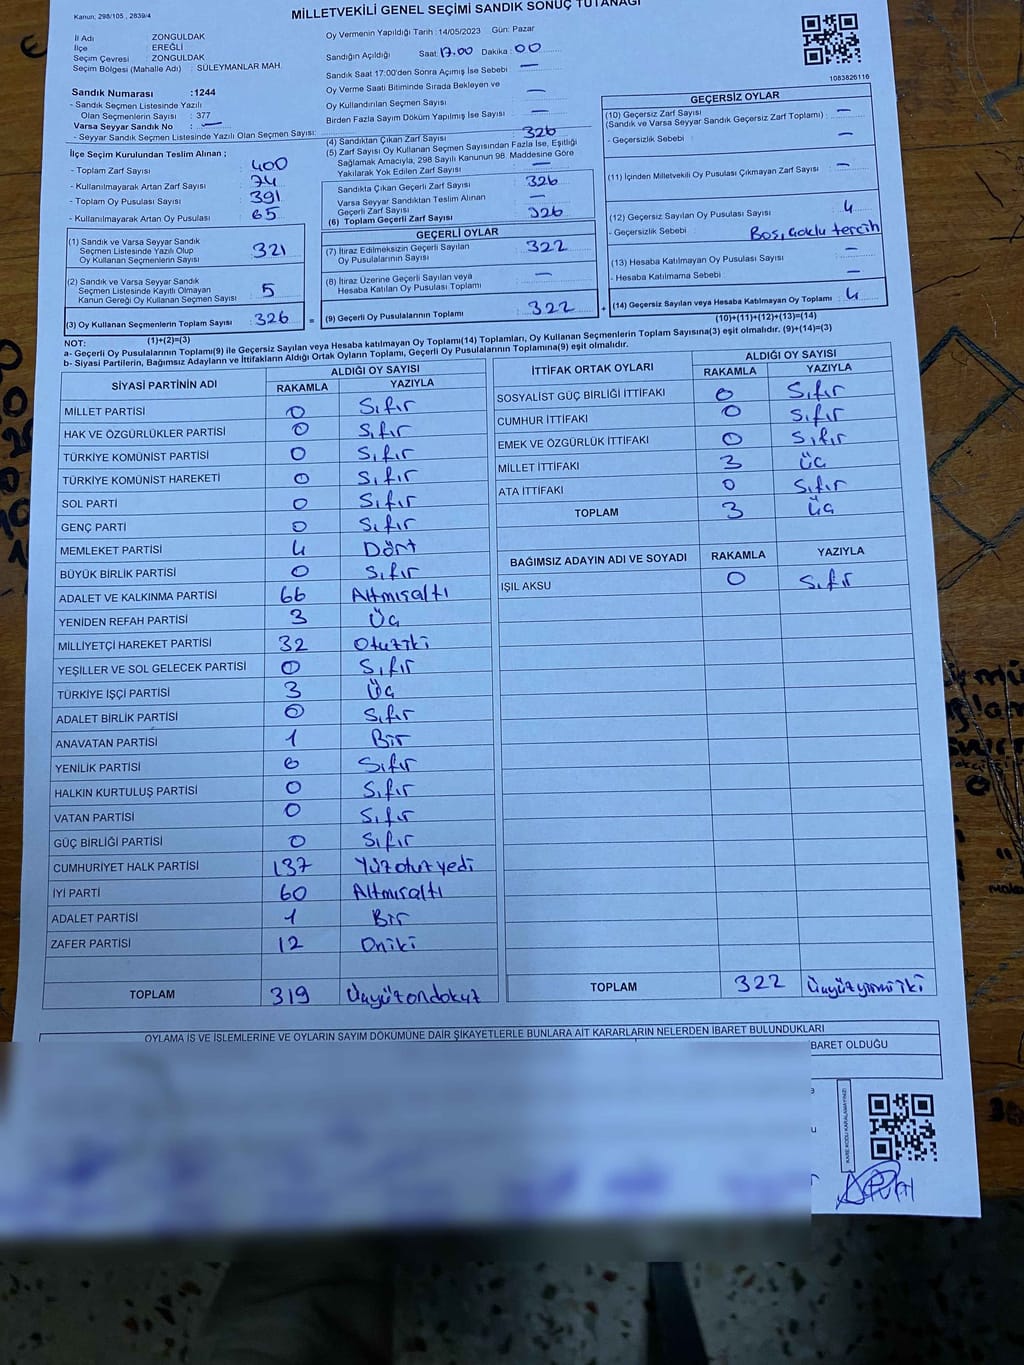 Kanun: 298/105 , 2839/4
MİLLETVEKİLİ GENEL SEÇİMİ SANDIK SONUÇ TUTANAĞI
İl Adı ZONGULDAK
İlçe EREĞLİ
Seçim Çevresi : ZONGULDAK
Seçim Bölgesi (Mahalle Adı) : SÜLEYMANLAR MAH.
Oy Vermenin Yapıldığı Tarih : 14/05/2023 Gün: Pazar
Sandığın Açıldığı Saat: 17.00 Dakika : 00
Sandık Saat 17:00'den Sonra Açımış İse Sebebi : —
Oy Verme Saati Bitiminde Sırada Bekleyen ve
Oy Kullandırılan Seçmen Sayısı : —
Birden Fazla Sayım Döküm Yapılmış İse Sayısı : —
1083826116
Sandık Numarası :1244
- Sandık Seçmen Listesinde Yazılı
Olan Seçmenlerin Sayısı : 377
Varsa Seyyar Sandık No : —
- Seyyar Sandık Seçmen Listesinde Yazılı Olan Seçmen Sayısı:
İlçe Seçim Kurulundan Teslim Alınan ;
- Toplam Zarf Sayısı : 400
- Kullanılmayarak Artan Zarf Sayısı : 74
- Toplam Oy Pusulası Sayısı : 391
- Kullanılmayarak Artan Oy Pusulası : 65
(1) Sandık ve Varsa Seyyar Sandık
Seçmen Listesinde Yazılı Olup
Oy Kullanan Seçmenlerin Sayısı : 321
(2) Sandık ve Varsa Seyyar Sandık
Seçmen Listesinde Kayıtlı Olmayan
Kanun Gereği Oy Kullanan Seçmen Sayısı : 5
(3) Oy Kullanan Seçmenlerin Toplam Sayısı : 326
(1)+(2)=(3)
(4) Sandıktan Çıkan Zarf Sayısı : 326
(5) Zarf Sayısı Oy Kullanan Seçmen Sayısından Fazla İse, Eşitliği
Sağlamak Amacıyla, 298 Sayılı Kanunun 98. Maddesine Göre
Yakılarak Yok Edilen Zarf Sayısı : —
Sandıkta Çıkan Geçerli Zarf Sayısı : 326
Varsa Seyyar Sandıktan Teslim Alınan
Geçerli Zarf Sayısı : —
(6) Toplam Geçerli Zarf Sayısı : 326
GEÇERLİ OYLAR
(7) İtiraz Edilmeksizin Geçerli Sayılan
Oy Pusulalarının Sayısı : 322
(8) İtiraz Üzerine Geçerli Sayılan veya
Hesaba Katılan Oy Pusulası Toplamı : —
= (9) Geçerli Oy Pusulalarının Toplamı : 322 +
GEÇERSİZ OYLAR
(10) Geçersiz Zarf Sayısı
(Sandık ve Varsa Seyyar Sandık Geçersiz Zarf Toplamı) : —
- Geçersizlik Sebebi : —
(11) İçinden Milletvekili Oy Pusulası Çıkmayan Zarf Sayısı : —
(12) Geçersiz Sayılan Oy Pusulası Sayısı : 4
- Geçersizlik Sebebi : Boş, çoklu tercih
(13) Hesaba Katılmayan Oy Pusulası Sayısı : —
- Hesaba Katılmama Sebebi : —
(14) Geçersiz Sayılan veya Hesaba Katılmayan Oy Toplamı : 4
(10)+(11)+(12)+(13)=(14)
NOT:
a- Geçerli Oy Pusulalarının Toplamı(9) ile Geçersiz Sayılan veya Hesaba katılmayan Oy Toplamı(14) Toplamları, Oy Kullanan Seçmenlerin Toplam Sayısına(3) eşit olmalıdır. (9)+(14)=(3)
b- Siyasi Partilerin, Bağımsız Adayların ve İttifakların Aldığı Ortak Oyların Toplamı, Geçerli Oy Pusulalarının Toplamına(9) eşit olmalıdır.
SİYASİ PARTİNİN ADI ALDIĞI OY SAYISI
RAKAMLA YAZIYLA
MİLLET PARTİSİ 0 Sıfır
HAK VE ÖZGÜRLÜKLER PARTİSİ 0 Sıfır
TÜRKİYE KOMÜNİST PARTİSİ 0 Sıfır
TÜRKİYE KOMÜNİST HAREKETİ 0 Sıfır
SOL PARTİ 0 Sıfır
GENÇ PARTİ 0 Sıfır
MEMLEKET PARTİSİ 4 Dört
BÜYÜK BİRLİK PARTİSİ 0 Sıfır
ADALET VE KALKINMA PARTİSİ 66 Altmışaltı
YENİDEN REFAH PARTİSİ 3 Üç
MİLLİYETÇİ HAREKET PARTİSİ 32 Otuziki
YEŞİLLER VE SOL GELECEK PARTİSİ 0 Sıfır
TÜRKİYE İŞÇİ PARTİSİ 3 Üç
ADALET BİRLİK PARTİSİ 0 Sıfır
ANAVATAN PARTİSİ 1 Bir
YENİLİK PARTİSİ 0 Sıfır
HALKIN KURTULUŞ PARTİSİ 0 Sıfır
VATAN PARTİSİ 0 Sıfır
GÜÇ BİRLİĞİ PARTİSİ 0 Sıfır
CUMHURİYET HALK PARTİSİ 137 Yüzotuzyedi
İYİ PARTİ 60 Altmışaltı
ADALET PARTİSİ 1 Bir
ZAFER PARTİSİ 12 Oniki
TOPLAM 319 Üçyüzondokuz
İTTİFAK ORTAK OYLARI ALDIĞI OY SAYISI
RAKAMLA YAZIYLA
SOSYALİST GÜÇ BİRLİĞİ İTTİFAKI 0 Sıfır
CUMHUR İTTİFAKI 0 Sıfır
EMEK VE ÖZGÜRLÜK İTTİFAKI 0 Sıfır
MİLLET İTTİFAKI 3 Üç
ATA İTTİFAKI 0 Sıfır
TOPLAM 3 Üç
BAĞIMSIZ ADAYIN ADI VE SOYADI RAKAMLA YAZIYLA
IŞIL AKSU 0 Sıfır
TOPLAM 322 Üçyüzyirmiiki
OYLAMA İŞ VE İŞLEMLERİNE VE OYLARIN SAYIM DÖKÜMÜNE DAİR ŞİKAYETLERLE BUNLARA AİT KARARLARIN NELERDEN İBARET BULUNDUKLARI
BARET OLDUĞU
KARE KODU KARALAMAYINIZ!